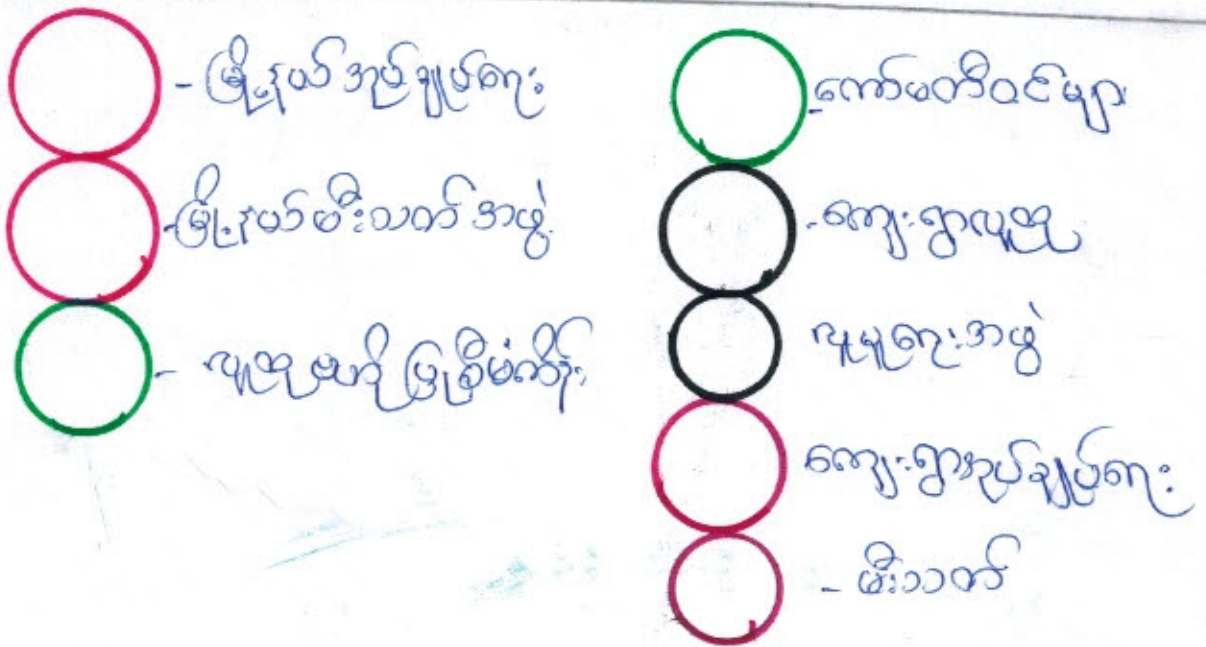 - မြို့နယ် အုပ်ချုပ်ရေး
- မြို့နယ် မီးသတ် အဖွဲ့
- လူထု ဗဟိုပြု စီမံကိန်း
- ကော်မတီဝင်များ
- ကျေးရွာလူထု
လူမှုရေးအဖွဲ့
ကျေးရွာအုပ်ချုပ်ရေး
- မီးသတ်